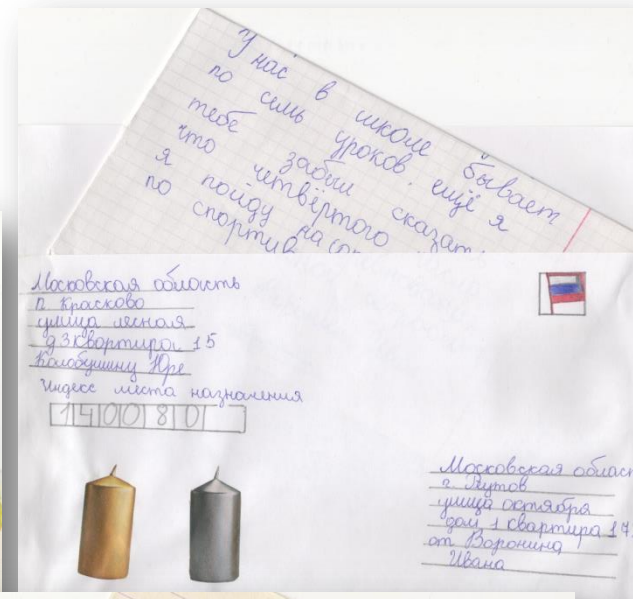 У нас в школе бывает
по семь уроков. ещё я
тебе забыл сказать
что четвёртого
я пойду на
по спортив
Московская область
п. Красково
улица лесная
д 3 квартира 15
Колобушину Юре
Индекс места назначения
140080
Московская облас
г. Реутов
улица октября
дом 1 квартира 17
от Воронина
Ивана